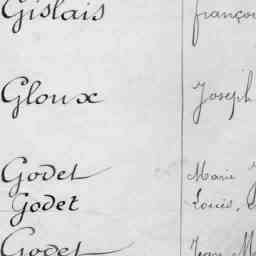 Gislais françoi
Gloux Joseph
Godet Marie
Godet Louis,
Godet Jean M